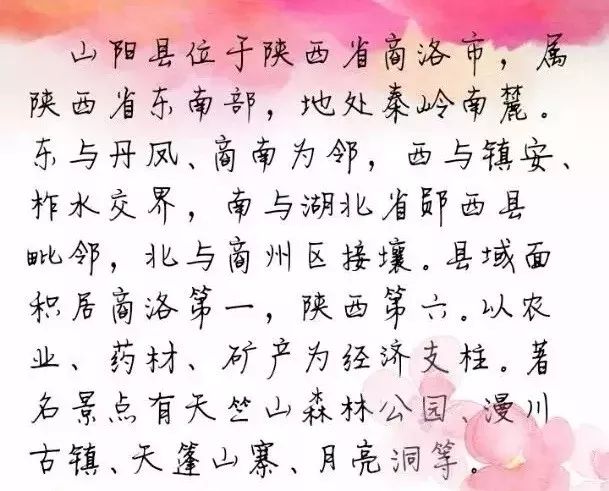 山阳县位于陕西省商洛市，属
陕西省东南部，地处秦岭南麓。
东与丹凤、商南为邻，西与镇安、
柞水交界，南与湖北省郧西县
毗邻，北与商州区接壤。县域面
积居商洛第一，陕西第六。以农
业、药材、矿产为经济支柱。著
名景点有天竺山森林公园、漫川
古镇、天蓬山寨、月亮洞等。